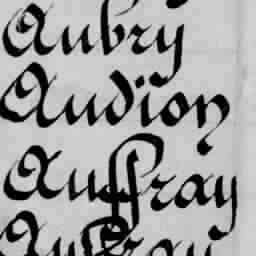 Aubry
Audion
Auffray